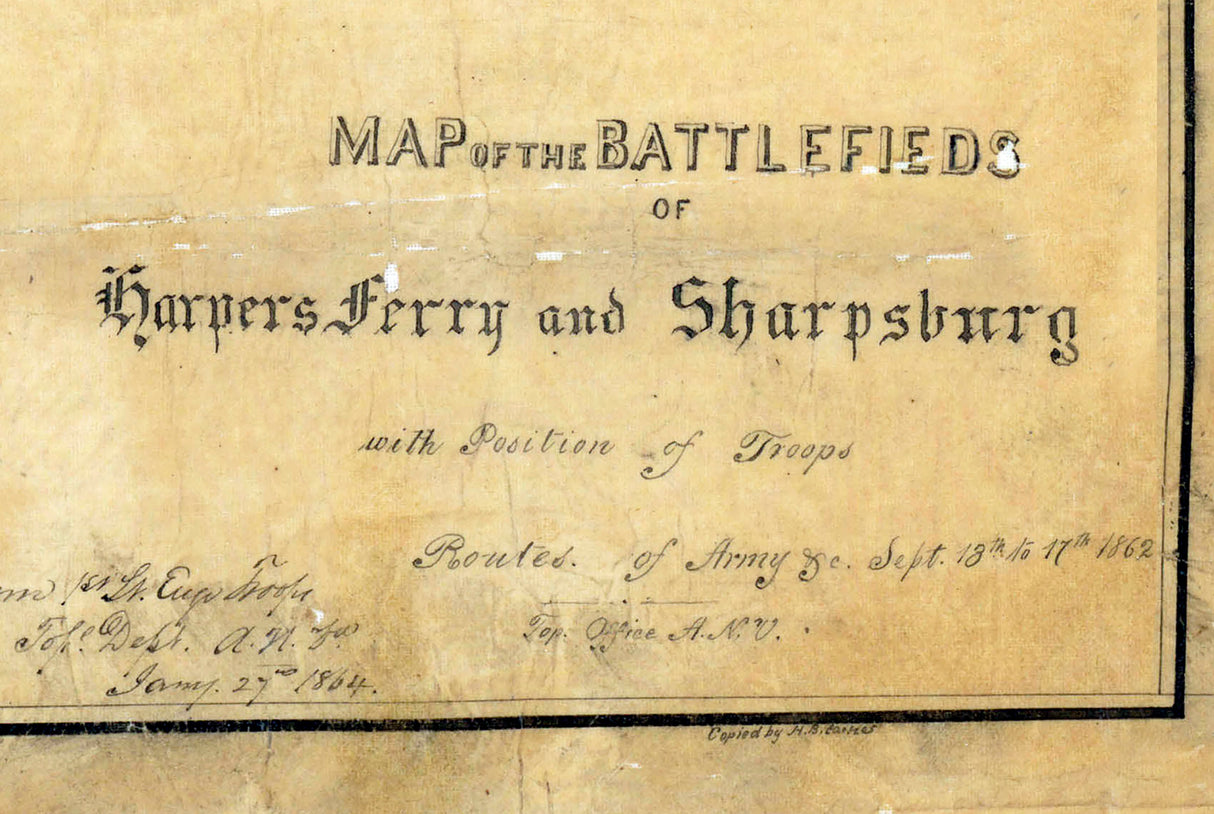 MAP OF THE BATTLEFIEDS
OF
Harpers Ferry and Sharpsburg
with Position of Troops
Routes. of Army &c. Sept. 13th to 17th 1862
Top. Office A.N.V.
1st Lt. Engr Troops
Topl. Dept. A. N. Va
Jany. 27th 1864.
Copied by H.B.